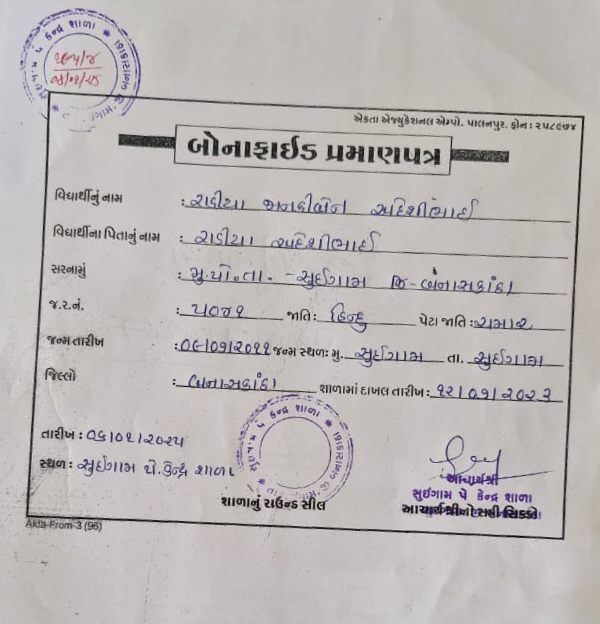 ૨૦૫/૪
એકતા એજ્યુકેશનલ એમ્પો. પાલનપુર. ફોન : ૨૫૮૯૭૪
બોનાફાઈડ પ્રમાણપત્ર
વિદ્યાર્થીનું નામ : રાઠીયા જાનકીબેન અદેશીભાઈ
વિદ્યાર્થીના પિતાનું નામ : રાઠીયા અદેશીભાઈ
સરનામું : મુ.પો.તા. - સુઈગામ જિ- બનાસકાંઠા
જ.ર.નં. : ૫૦૪૧ જાતિ : હિન્દુ પેટા જાતિ : ચમાર
જન્મ તારીખ : ૦૯/૦૧/૨૦૧૧ જન્મ સ્થળ: મુ. સુઈગામ તા. સુઈગામ
જિલ્લો : બનાસકાંઠા શાળામાં દાખલ તારીખ : ૧૨/૦૧/૨૦૨૩
તારીખ : ૦૬/૦૨/૨૦૨૫
સ્થળ : સુઈગામ પે.કેન્દ્ર શાળા
શાળાનું રાઉન્ડ સીલ
આચાર્યશ્રી
સુઈગામ પે કેન્દ્ર શાળા
આચાર્યશ્રીનો સહી સિક્કો
Akta-From-3 (96)